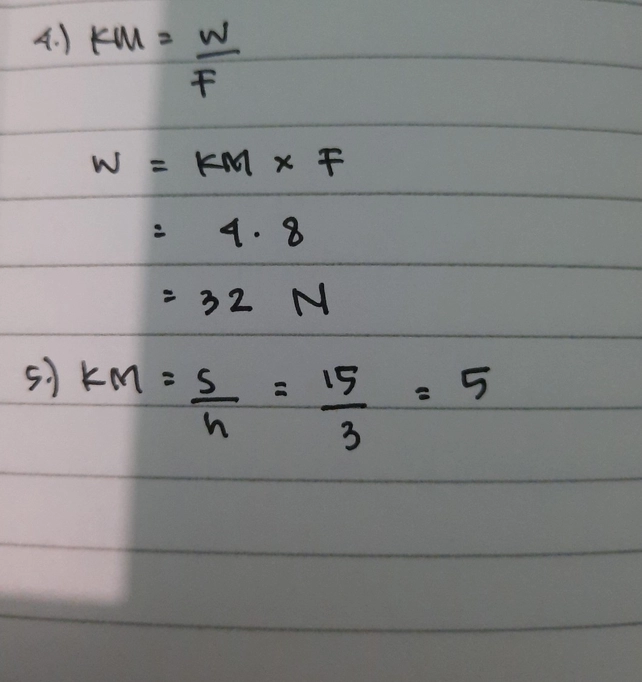 4.) KM = W/F
W = KM x F
= 4 . 8
= 32 N
5.) KM = s/h = 15/3 = 5